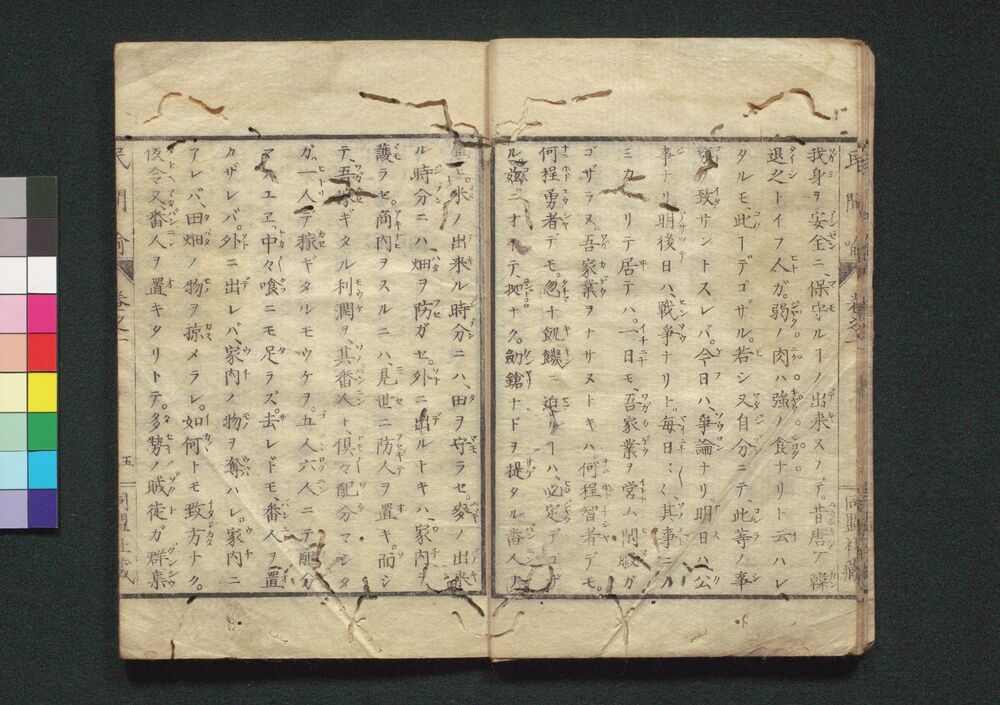 我身ヲ安全ニ、保守ルヿノ出来ヌノデ。昔唐デ韓
退之トイフ人ガ。弱ノ肉ハ強ノ食ナリト云ハレ
タルモ、此ヿデゴザル。若シ又自分ニテ、此等ノ事
致サントスレバ。今日ハ、爭論ナリ明日ハ公
事ナリ。明後日ハ、戰爭ナリト。每日〳〵其事ニ
リテ居テハ。一日モ、吾家業ヲ営ム間暇ガ
ゴザラヌ。吾家業ヲナサヌトキハ。何程智者デモ。
何程勇者デモ。忽ナ飢饑ニ迫ルヿハ、必定デゴザ
ル。茲ニオイテ、拠ナク。劒鎗ナドヲ提タル番人ヲ
雇ヒ。米ノ出来ル時分ニハ、田ヲ守ラセ。麥ノ出来
ル時分ニハ、畑ヲ防ガセ。外ニ出ルトキハ、家内ヲ
護ラセ。商内ヲスルニハ見世ニ防人ヲ置キ。而シ
テ、吾稼ギタル利潤ヲ、其番人ト、倶々配分マシタ
ガ。一人デ稼ギタルモウケヲ。五人六人ニテ配分
ユヱ。中々喰ニモ足ラズ。去レドモ、番人ヲ置
カザレバ。外ニ出レバ、家内ノ物ヲ奪ハレ。家内ニ
アレバ、田畑ノ物ヲ掠メラレ。如何トモ致方ナク。
仮令又番人ヲ置キタリトテ。多勢ノ賊徒ガ群集
民間
五
同盟社藏